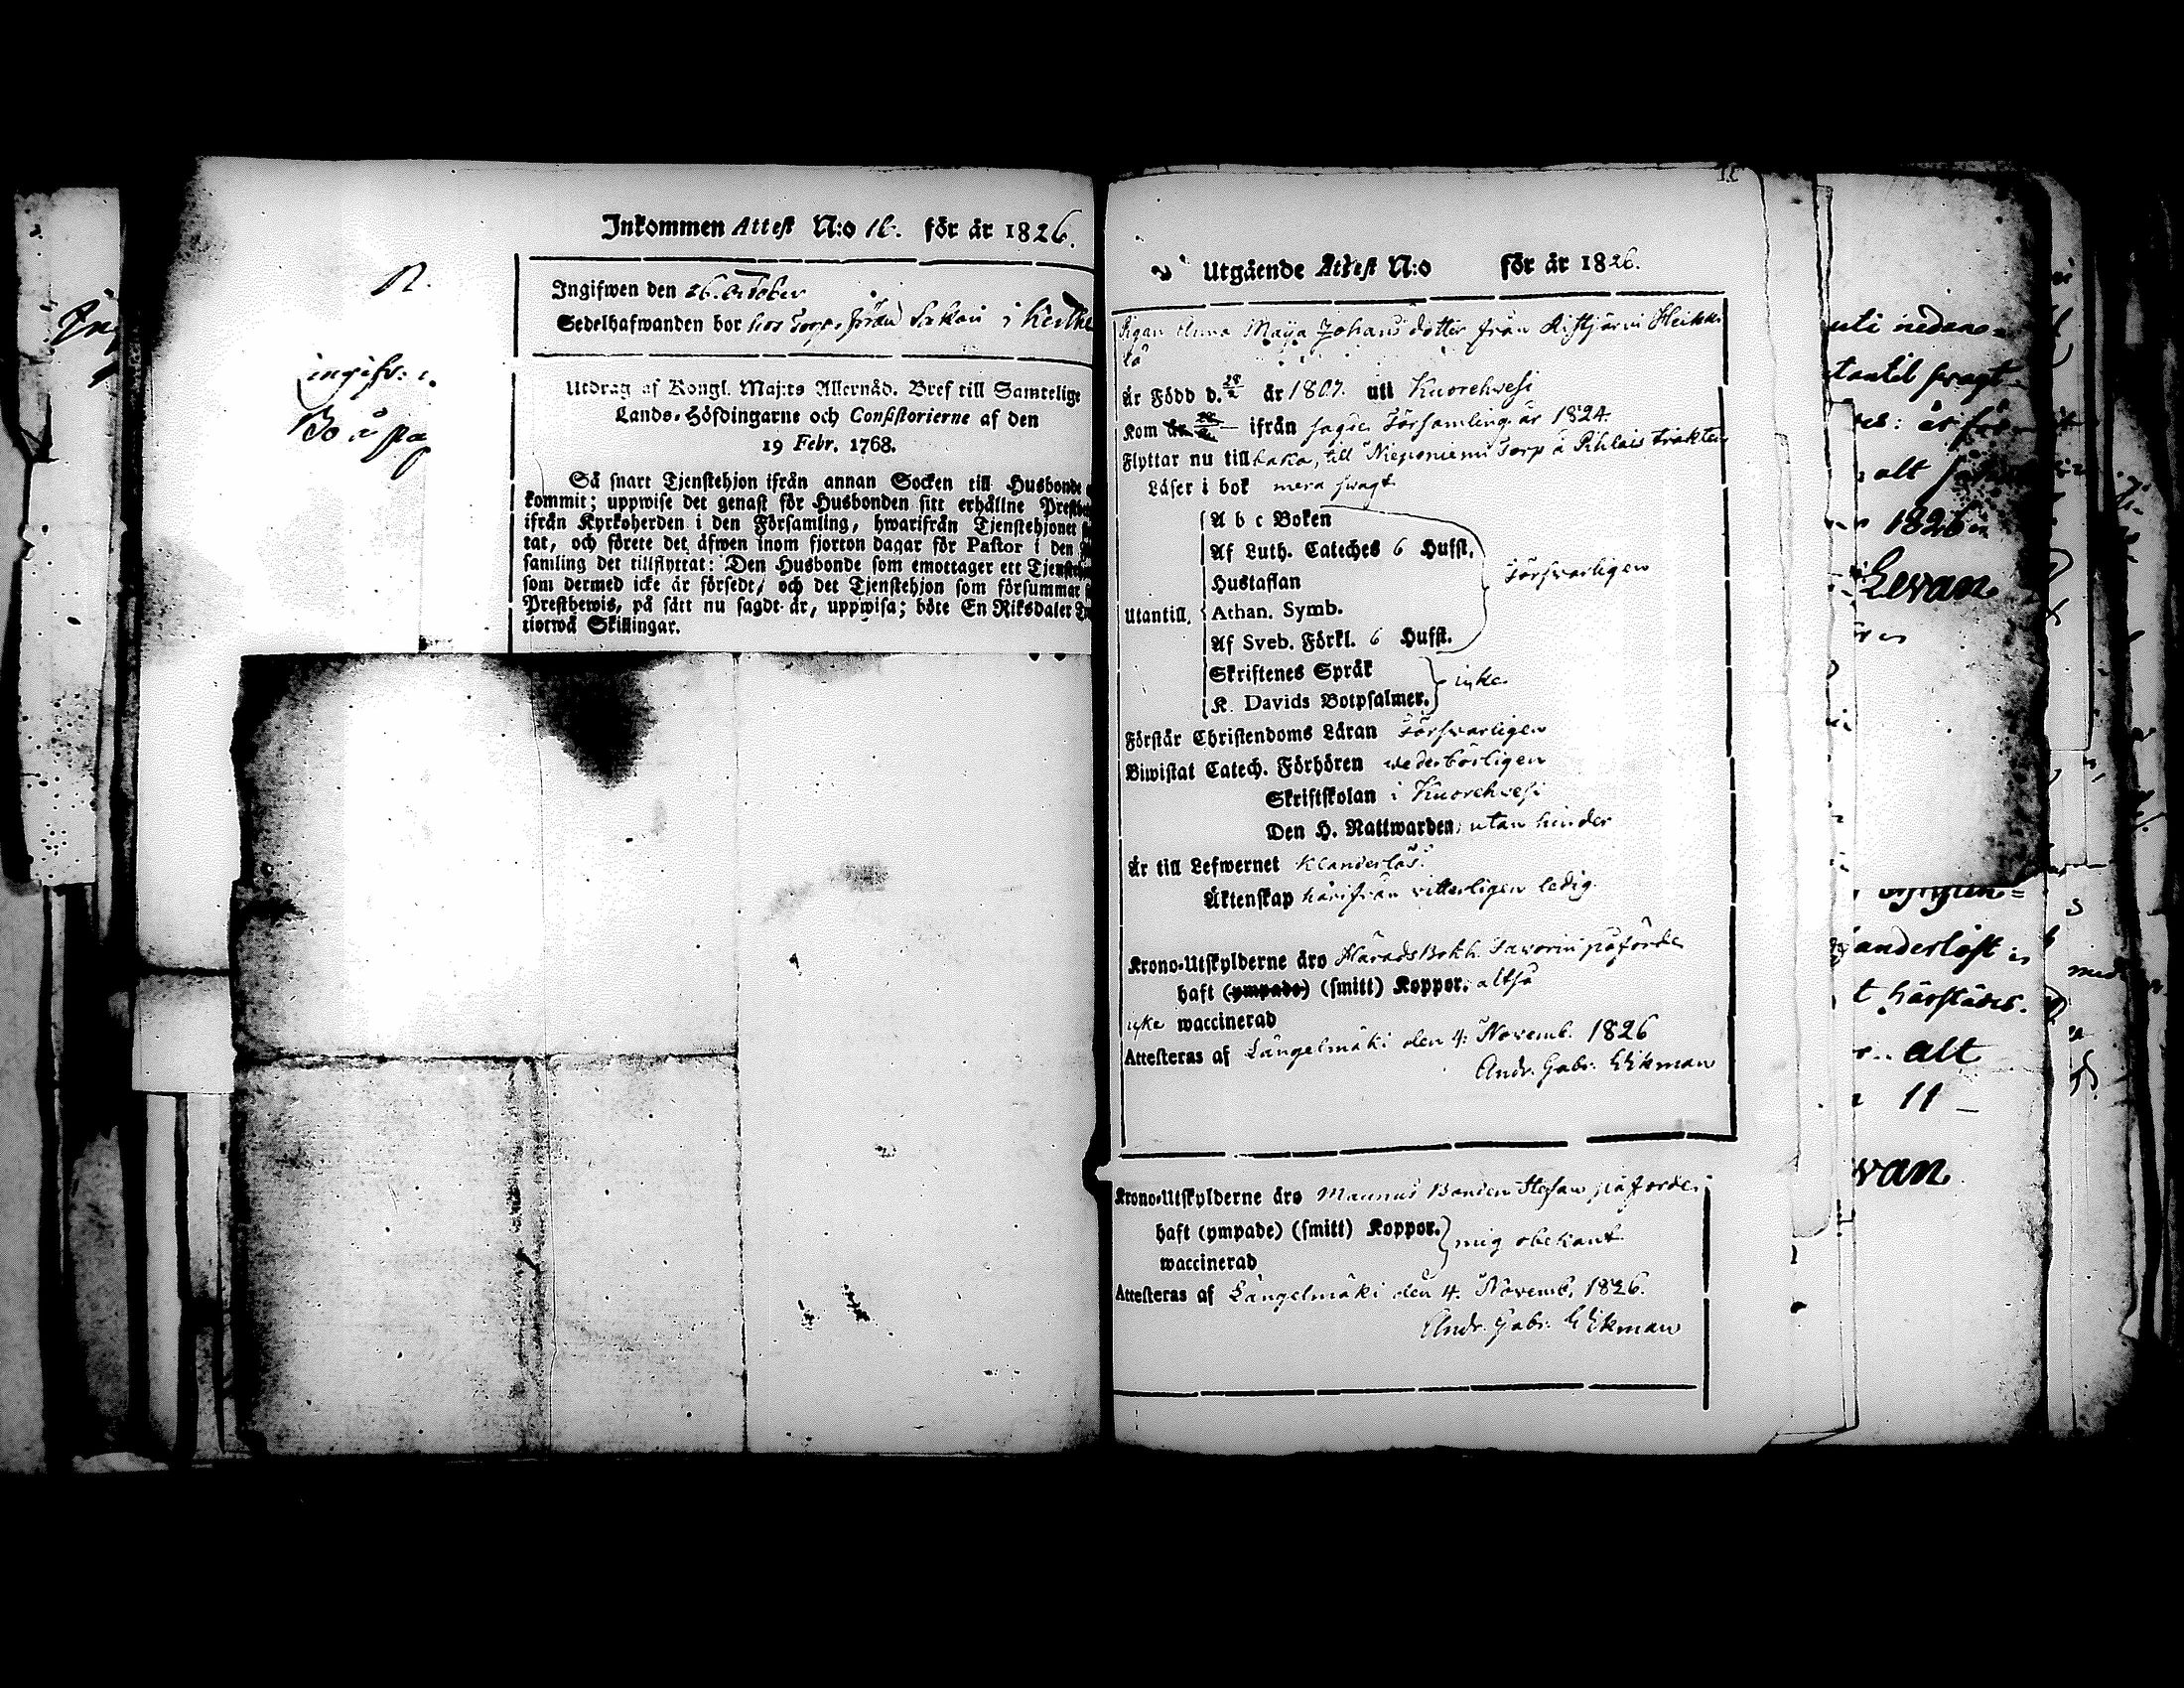 Inkommen Attest N:o 16. för år 1826.
Ingifwen den 26. October
Sedelhafwanden bor hos Torp. i
N.
ingifv:
Bo å
Utdrag af Kongl. Maj:ts Allernåd. Bref till Samtelige
Lands-Höfdingarne och Consistorierne af den
19 Febr. 1768.
Så snart Tjenstehjon ifrån annan Socken till Husbonde
kommit; uppwise det genast för Husbonden sitt erhållne
ifrån Kyrkoherden i den Församling, hwarifrån Tjenstehjonet
tat, och förete det äfwen inom fjorton dagar för Pastor i den
samling det tillflyttat: Den Husbonde som emottager ett
som dermed icke är försedt, och det Tjenstehjon som försummar
Prestbewis, på sätt nu sagdt är, uppwisa; böte En Riksdaler
tiotwå Skillingar.
Utgående Attest N:o för år 1826.
Pigan Anna Maija Johans dotter från Ristjärwi Heikki
lä
Är Född d. 28/2 år 1807. uti Kuorehwesi
Kom ifrån sagde Församling år 1824.
Flyttar nu tillbaka, till Nieponiemi Torp å Pihlais trakten
Läser i bok mera swagt
Utantill,
A b c Boken
Af Luth. Cateches 6 Hufst.
Hustaflan
Athan. Symb.
Af Sveb. Förkl. 6 Hufst.
Förswarligen
Skriftenes Språk
K. Davids Botpsalmer.
icke
Förstår Christendoms Läran Förswarligen
Biwistat Catech. Förhören wederbörligen
Skriftskolan i Kuorehwesi
Den H. Nattwarden utan hinder
Är till Lefwernet klanderlös.
Äktenskap härifrån vitterligen ledig.
Krono-Utskylderne äro HäradsBokh. Taworin påförde
haft (ympade) (smitt) Koppor. altså
icke waccinerad
Attesteras af Längelmäki den 4: Novemb. 1826
Andr. Gabr. Wikman
Krono-Utskylderne äro Maunus Bonden Stefan påförde.
haft (ympade) (smitt) Koppor.
waccinerad
mig obekant
Attesteras af Längelmäki den 4. Novemb. 1826.
Andr. Gabr. Wikman
uti nedan=
utantil swagt
alt
1826
Levan
anderlöst
t härstädes.
alt
11
van